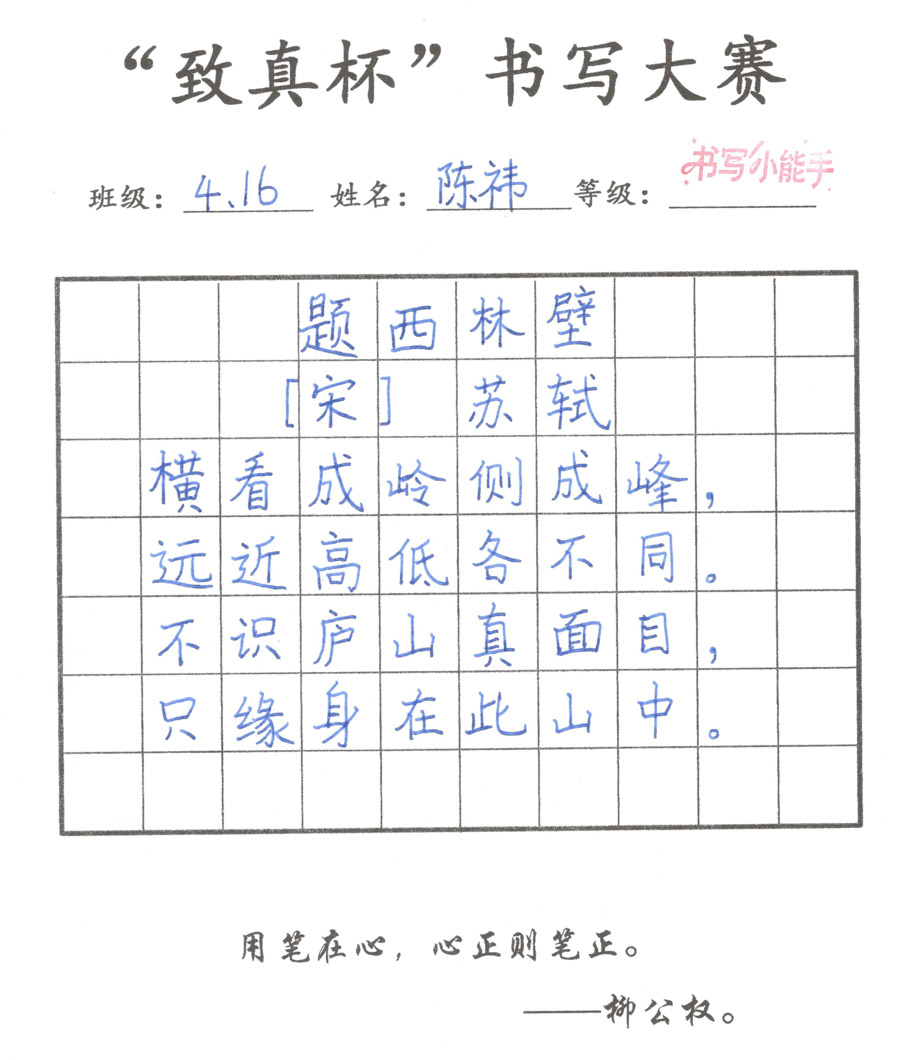 “致真杯”书写大赛
班级：4.16 姓名：陈祎 等级：书写小能手
题西林壁
[宋] 苏轼
横看成岭侧成峰，
远近高低各不同。
不识庐山真面目，
只缘身在此山中。
用笔在心，心正则笔正。
——柳公权。